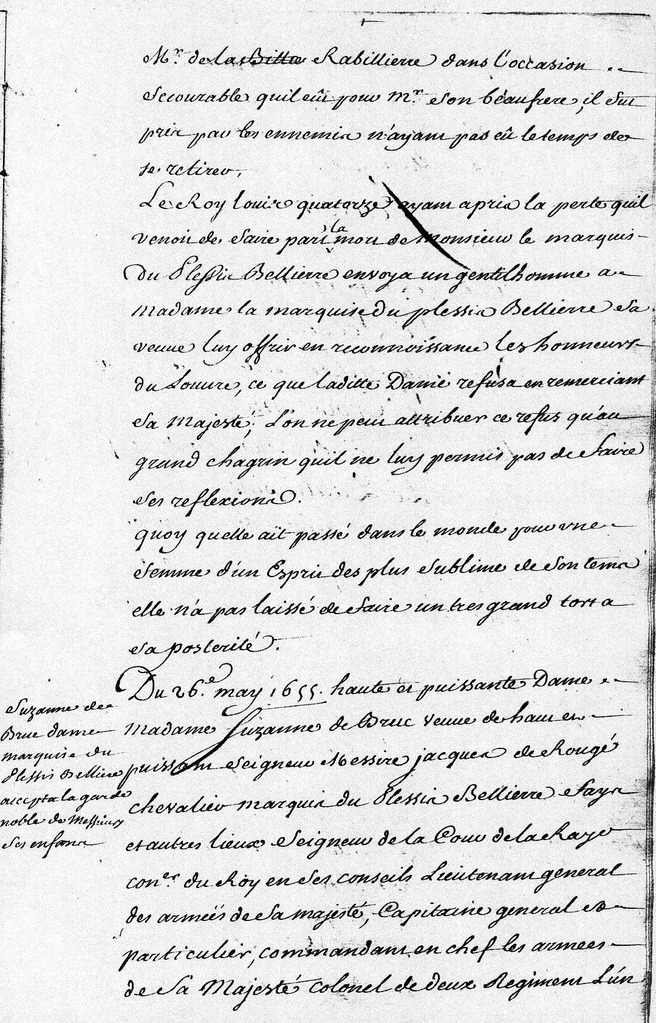 Mr. de la Bitta Rabillierre dans l'occasion
secourable quil eût pour mr. son beaufrere, il fut
pris par les ennemis n'ayant pas eû le temps de
se retirer.
Le Roy louis quatorze, ayant apris la perte quil
venoit de faire par la mort de Monsieur le marquis
du Plessis Bellierre envoya un gentilhomme a
Madame la marquise du plessis Bellierre sa
veuve luy offrir en reconnoissance les honneurs
du Louvre, ce que laditte Dame refusa en remerciant
sa Majesté, L'on ne peut attribuer ce refus qu'au
grand chagrin quil ne luy permit pas de faire
ses reflexions.
quoy quelle ait passé dans le monde pour une
femme d'un Esprit des plus sublime de son tems
elle n'a pas laissé de faire un tres grand tort a
sa posterité.
Du 26.e may 1655. haute et puissante Dame
Madame Suzanne de Bruc veuve de haut et
puissant seigneur Messire jacques de Rougé
chevalier marquis du Plessis Bellierre faye
et autres lieux seigneur de la Cour de la Raye
con.er du Roy en ses conseils Lieutenant general
des armeés de sa majesté, Capitaine general et
particulier, commandant en chef les armees
de sa Majesté colonel de deux Regiment L'un
Suzanne de
Bruc dame
marquise du
Plessis Belliere
accepta la garde
noble de Messieurs
ses enfans